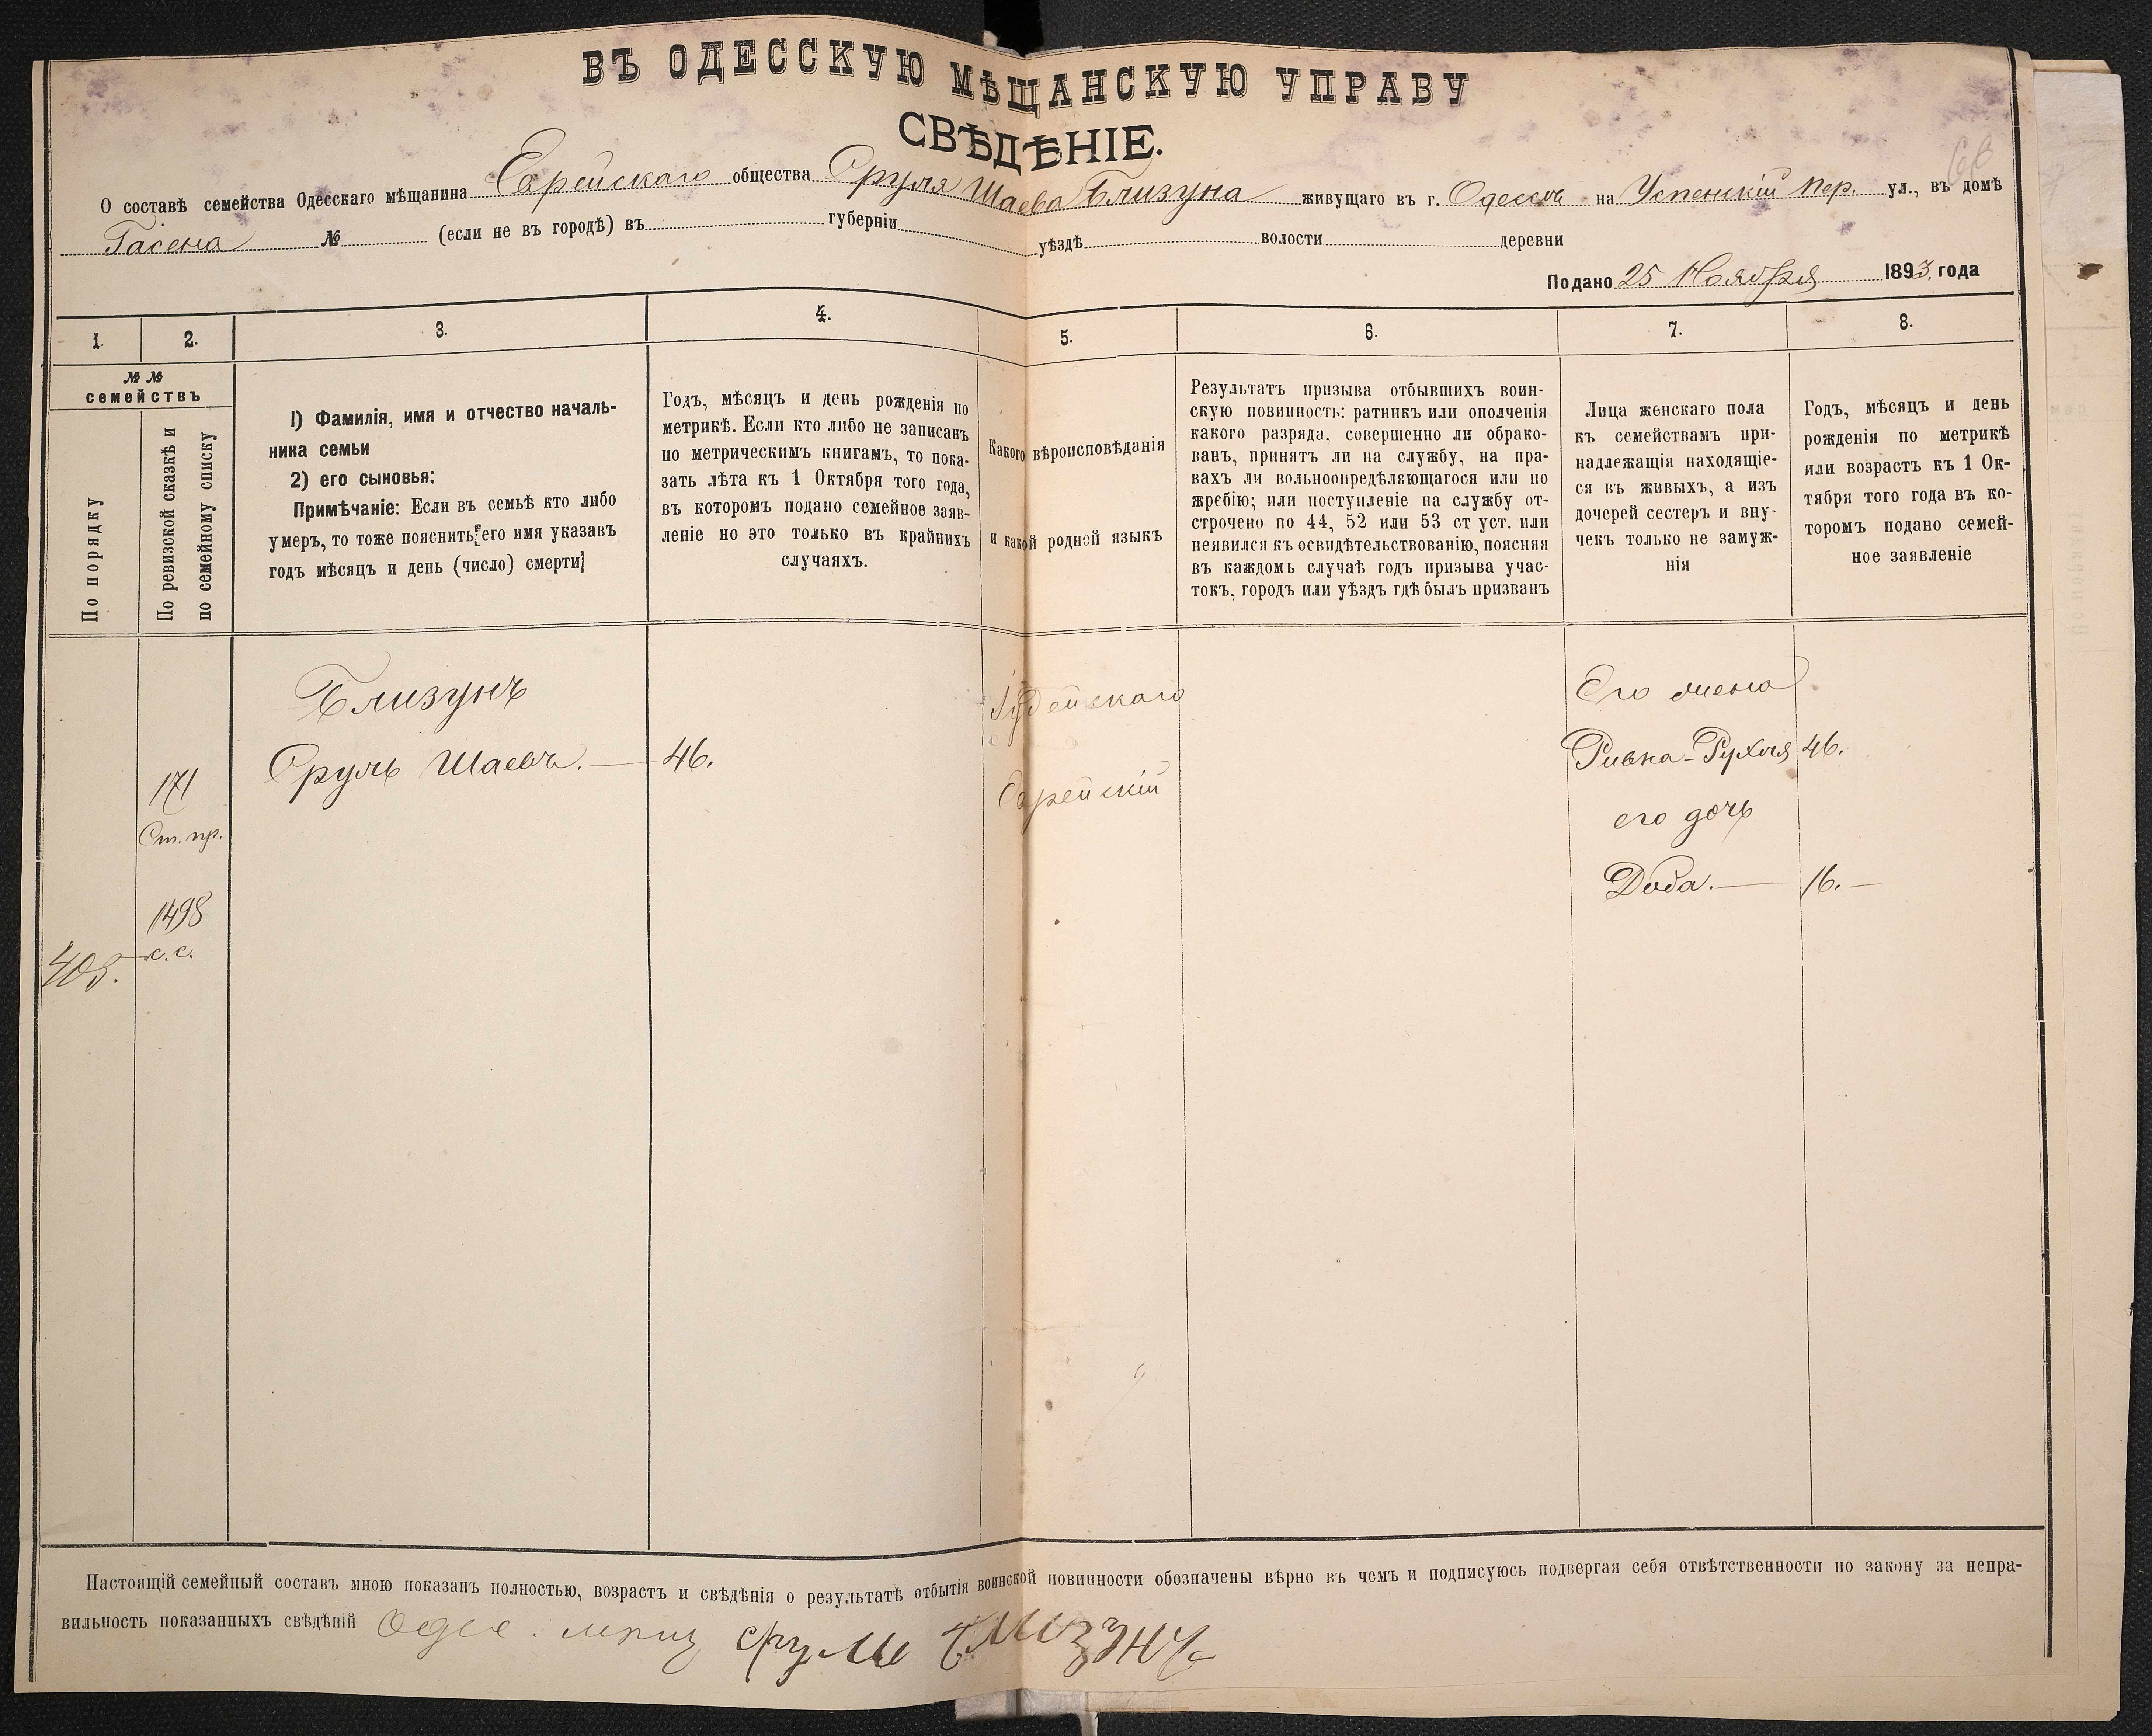 ВЪ ОДЕССКУЮ МѢЩАНСКУЮ УПРАВУ
СВѢДѢНІЕ.
О составѣ семейства Одесскаго мѣщанина Еврейскаго общества Сруля Шаева Близуна живущаго въ г. Одессѣ на Успенскій пер. ул., въ домѣ
Гасена № (если не въ городѣ) въ губерніи уѣздѣ волости деревни
Подано 25 Ноября 1893 года
1. 2. 3. 4. 5. 6. 7. 8.
№ №
семействъ
По порядку
По ревизской сказкѣ и
по семейному списку
1) Фамилія, имя и отчество началь-
ника семьи
2) его сыновья:
Примѣчаніе: Если въ семьѣ кто либо
умеръ, то тоже пояснить его имя указавъ
годъ мѣсяцъ и день (число) смерти
Годъ, мѣсяцъ и день рожденія по
метрикѣ. Если кто либо не записанъ
по метрическимъ книгамъ, то пока-
зать лѣта къ 1 Октября того года,
въ которомъ подано семейное заяв-
леніе но это только въ крайнихъ
случаяхъ.
Какого вѣроисповѣданія
и какой родной языкъ
Результатъ призыва отбывшихъ воин-
скую повинность: ратникъ или ополченія
какого разряда, совершенно ли обрако-
ванъ, принятъ ли на службу, на пра-
вахъ ли вольноопредѣляющагося или по
жребію; или поступленіе на службу от-
строчено по 44, 52 или 53 ст уст. или
неявился къ освидѣтельствованію, поясняя
въ каждомь случаѣ годъ призыва учас-
токъ, городъ или уѣздъ гдѣ былъ призванъ
Лица женскаго пола
къ семействамъ при-
надлежащія находящіе-
ся въ живыхъ, а изъ
дочерей сестеръ и вну-
чекъ только не замуж-
нія
Годъ, мѣсяцъ и день
рожденія по метрикѣ
или возрастъ къ 1 Ок-
тября того года въ ко-
торомъ подано семей-
ное заявленіе
405.
171
Ст. пр.
1498
с. с.
Близунъ
Сруль Шаевъ. — 46.
Іудейскаго
Еврейскій
Его жена
Ривка-Рухля 46.
его дочь
Доба. — 16. —
Настоящій семейный составъ мною показанъ полностью, возрастъ и свѣдѣнія о результатѣ отбытія воинской повинности обозначены вѣрно въ чемъ и подписуюсь подвергая себя отвѣтственности по закону за непра-
вильность показанныхъ свѣдѣній Одес.